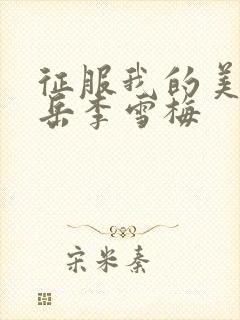 征服我的美
岳李雪梅
宋米秦